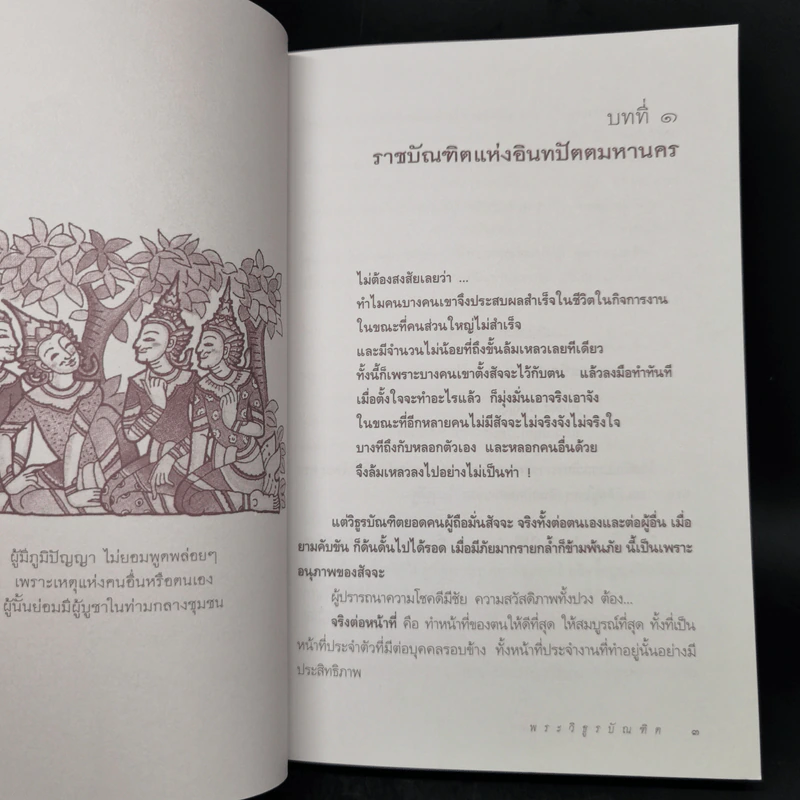 ผู้มีภูมิปัญญา ไม่ยอมพูดพล่อยๆ
เพราะเหตุแห่งคนอื่นหรือตนเอง
ผู้นั้นย่อมมีผู้บูชาในท่ามกลางชุมชน
บทที่ ๑
ราชบัณฑิตแห่งอินทปัตตมหานคร
ไม่ต้องสงสัยเลยว่า ...
ทำไมคนบางคนเขาจึงประสบผลสำเร็จในชีวิตในกิจการงาน
ในขณะที่คนส่วนใหญ่ไม่สำเร็จ
และมีจำนวนไม่น้อยที่ถึงขั้นล้มเหลวเลยทีเดียว
ทั้งนี้ก็เพราะบางคนเขาตั้งสัจจะไว้กับตน แล้วลงมือทำทันที
เมื่อตั้งใจจะทำอะไรแล้ว ก็มุ่งมั่นเอาจริงเอาจัง
ในขณะที่อีกหลายคนไม่มีสัจจะไม่จริงจังไม่จริงใจ
บางทีถึงกับหลอกตัวเอง และหลอกคนอื่นด้วย
จึงล้มเหลวลงไปอย่างไม่เป็นท่า !
แต่วิธูรบัณฑิตยอดคนผู้ถือมั่นสัจจะ จริงทั้งต่อตนเองและต่อผู้อื่น เมื่อ
ยามคับขัน ก็ดั้นด้นไปได้รอด เมื่อมีภัยมากรายกล้ำก็ข้ามพ้นภัย นี้เป็นเพราะ
อนุภาพของสัจจะ
ผู้ปรารถนาความโชคดีมีชัย ความสวัสดิภาพทั้งปวง ต้อง...
จริงต่อหน้าที่ คือ ทำหน้าที่ของตนให้ดีที่สุด ให้สมบูรณ์ที่สุด ทั้งที่เป็น
หน้าที่ประจำตัวที่มีต่อบุคคลรอบข้าง ทั้งหน้าที่ประจำงานที่ทำอยู่นั้นอย่างมี
ประสิทธิภาพ
พระวิธูรบัณฑิต ๓